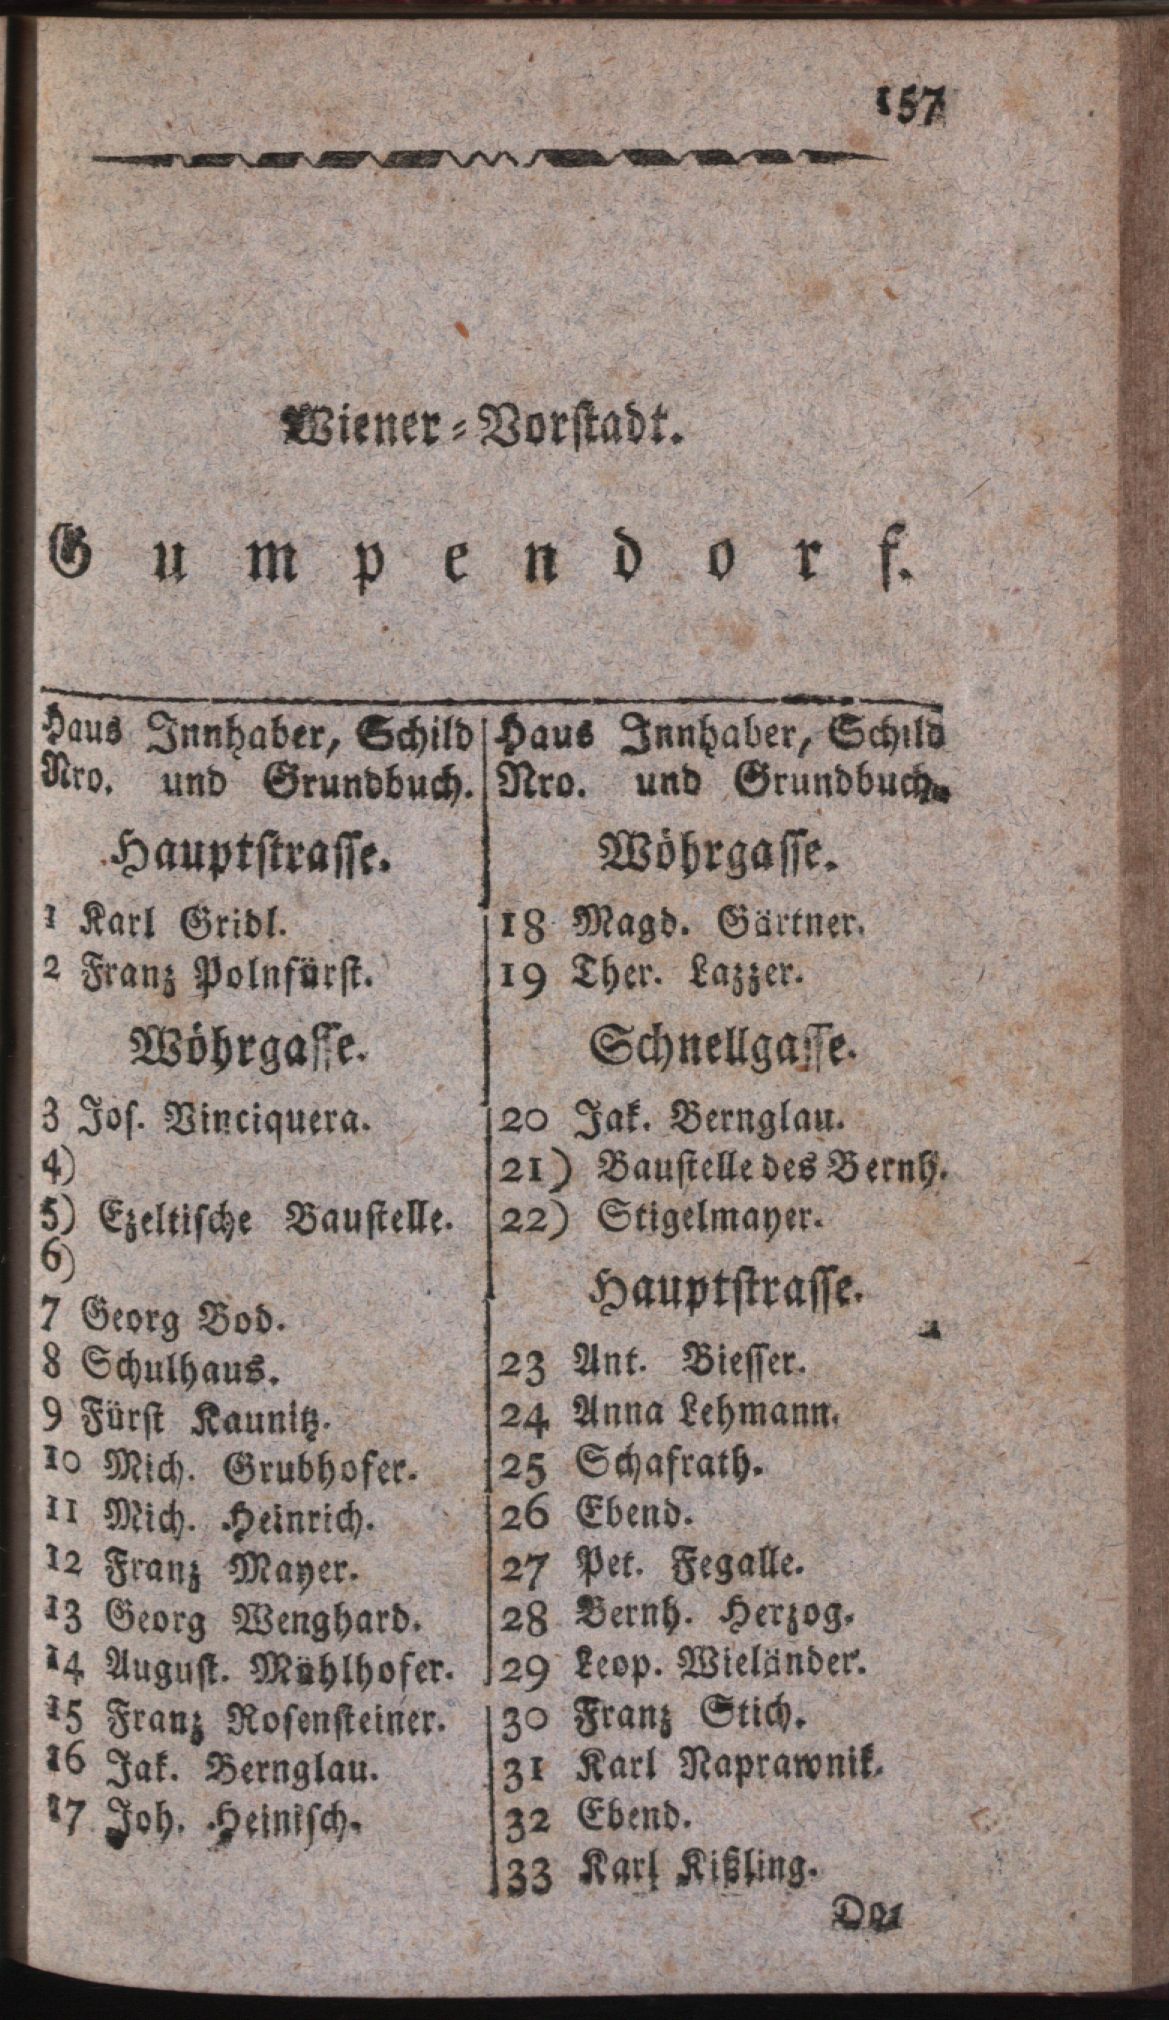 157
Wiener-Vorstadt.
Gumpendorf.
Haus Innhaber, Schild
Nro. und Grundbuch.
Hauptstrasse.
1 Karl Gridl.
2 Franz Polnfürst.
Wöhrgasse.
3 Jos. Vinciquera.
4)
5) Ezeltische Baustelle.
6)
7 Georg Bod.
8 Schulhaus.
9 Fürst Kaunitz.
10 Mich. Grubhofer.
11 Mich. Heinrich.
12 Franz Mayer.
13 Georg Wenghard.
14 August. Mühlhofer.
15 Franz Rosensteiner.
16 Jak. Bernglau.
17 Joh. Heinisch.
Haus Innhaber, Schild
Nro. und Grundbuch.
Wöhrgasse.
18 Magd. Gärtner.
19 Ther. Lazzer.
Schnellgasse.
20 Jak. Bernglau.
21) Baustelle des Bernh.
22) Stigelmayer.
Hauptstrasse.
23 Ant. Biesser.
24 Anna Lehmann.
25 Schafrath.
26 Ebend.
27 Pet. Fegalle.
28 Bernh. Herzog.
29 Leop. Wieländer.
30 Franz Stich.
31 Karl Naprawnik.
32 Ebend.
33 Karl Kißling.